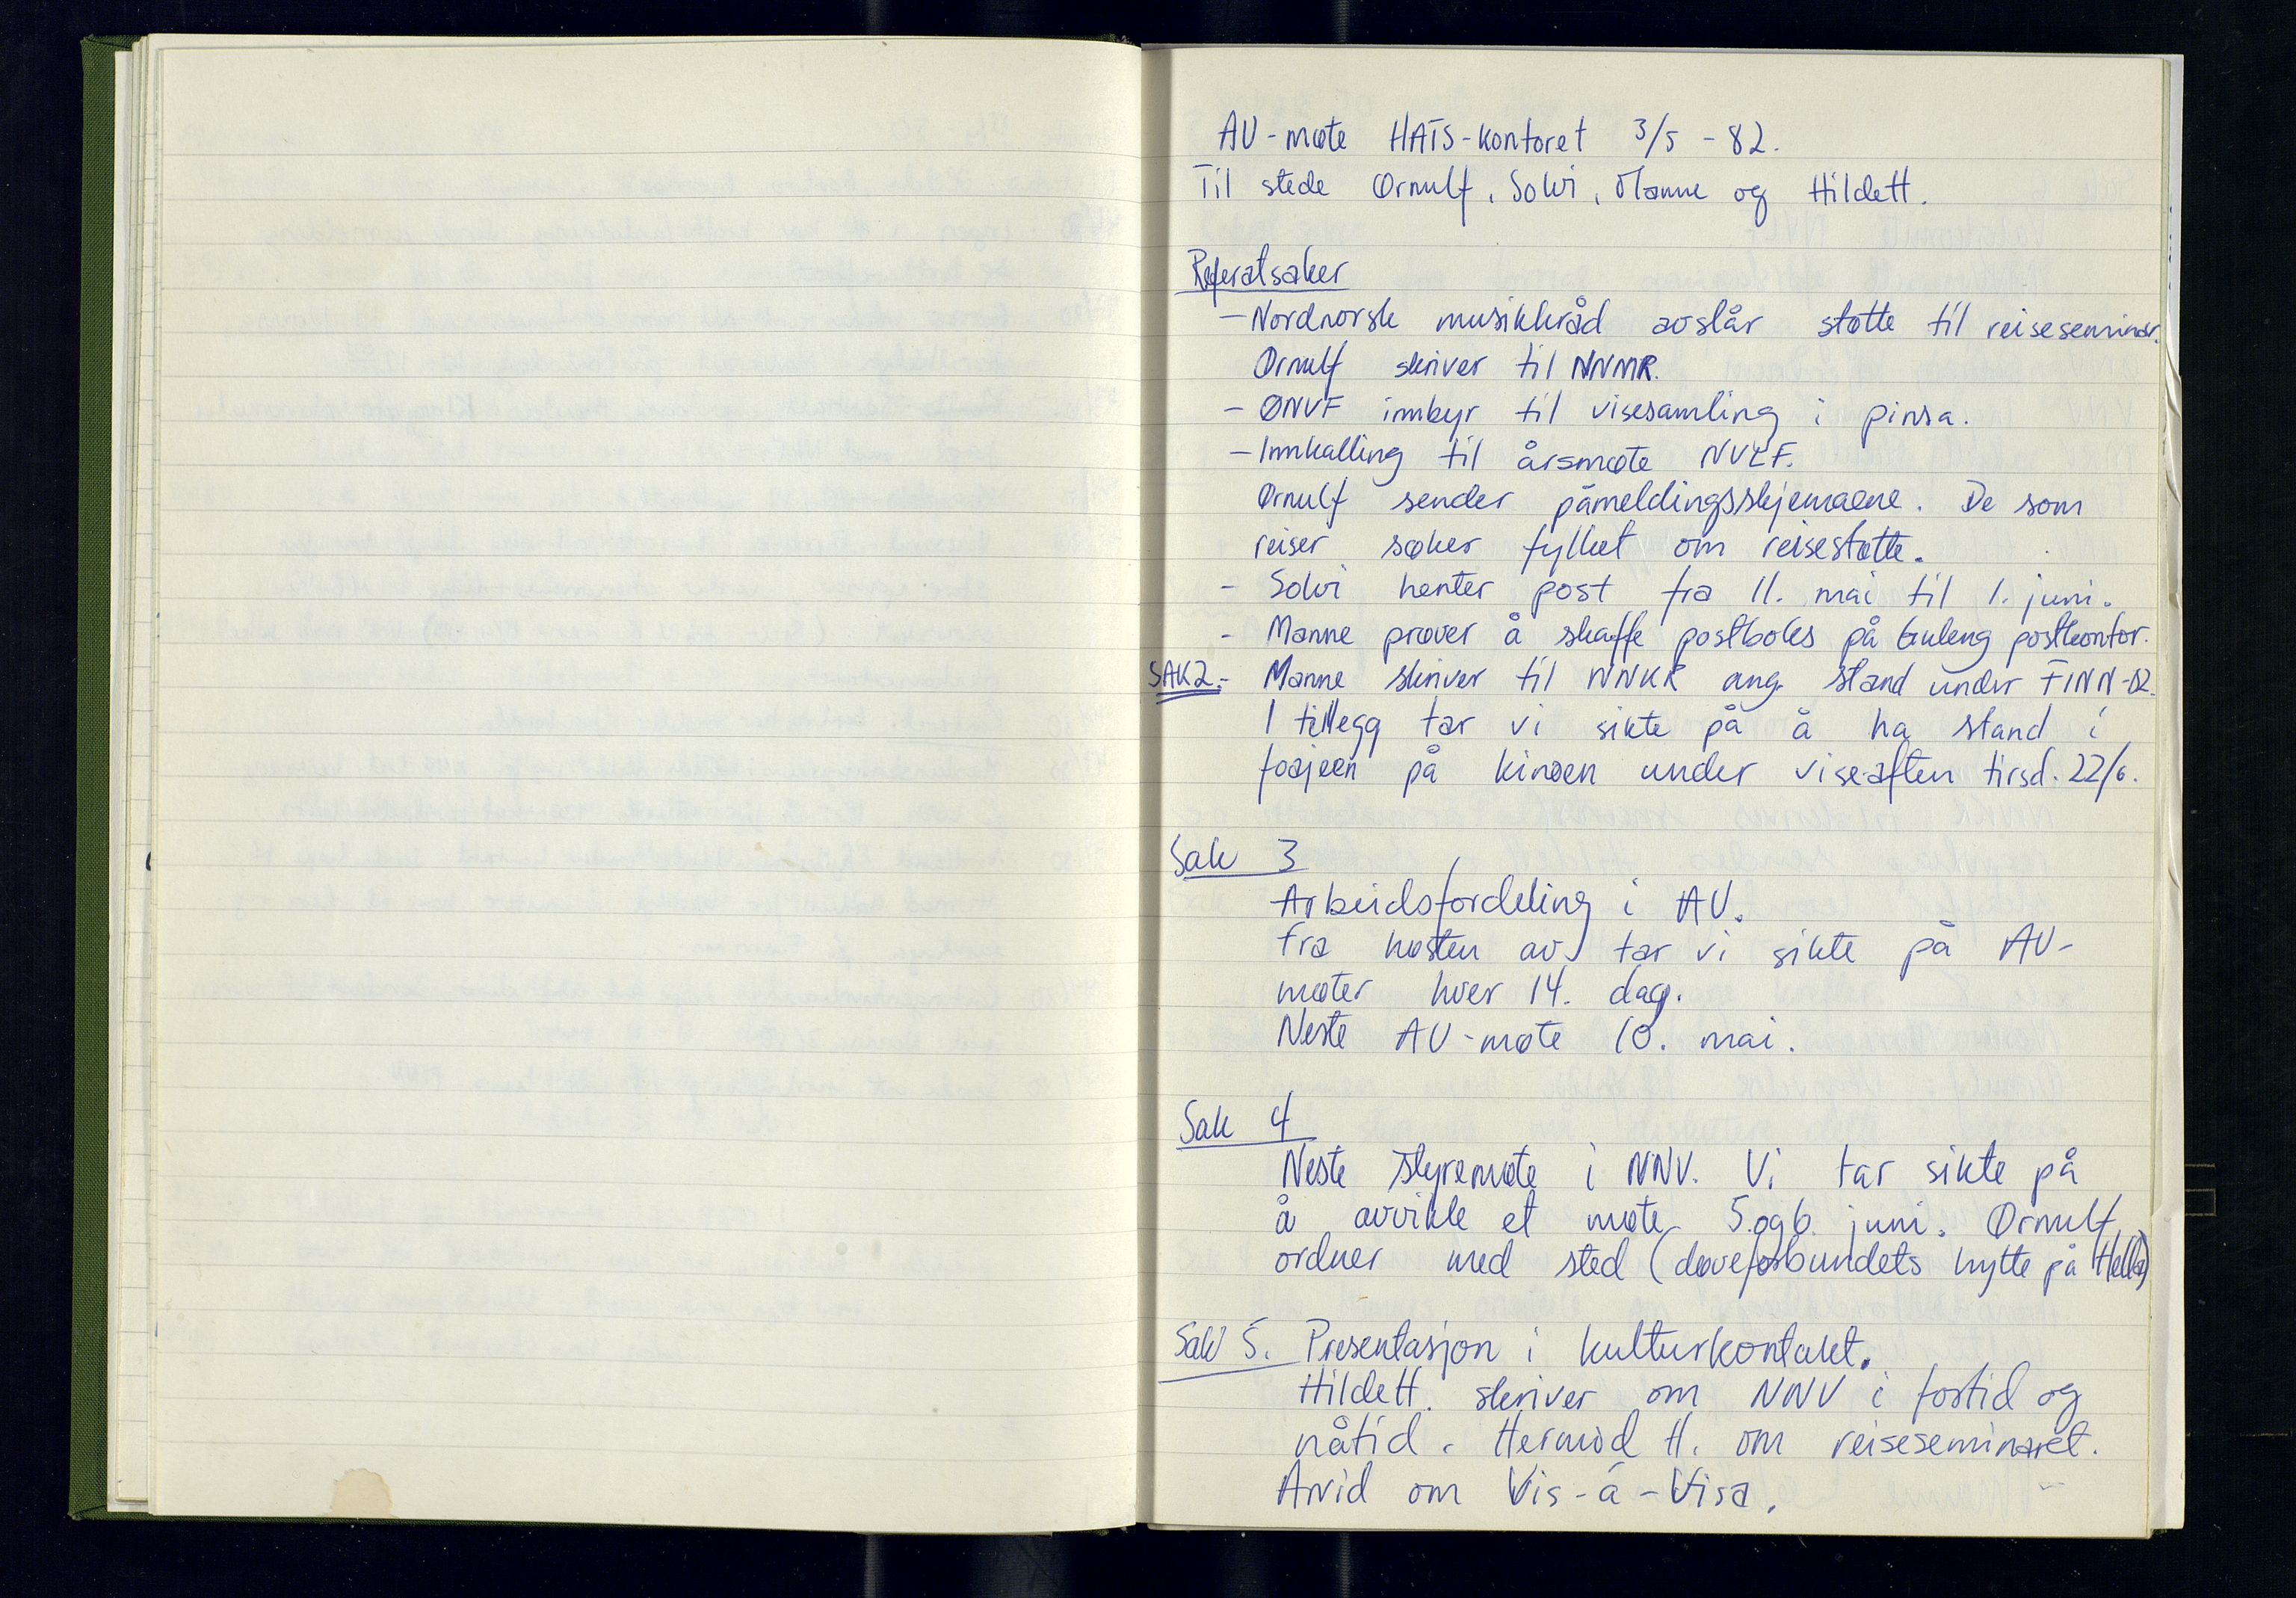 AU-møte HATS-kontoret 3/5 - 82.
Til stede Ørnulf, Solvi, Manne og Hildett.
Referatsaker
- Nordnorsk musikkråd avslår støtte til reiseseminar.
Ørnulf skriver til NNMR.
- ØNVF innbyr til visesamling i pinsa.
- Innkalling til årsmøte NVLF.
Ørnulf sender påmeldingsskjemaene. De som
reiser søker fylket om reisestøtte.
- Sølvi henter post fra 11. mai til 1. juni.
- Manne prøver å skaffe postboks på Guleng postkontor.
SAK 2.- Manne skriver til NNKR ang. stand under FINN-82.
I tillegg tar vi sikte på å ha stand i
foajeen på kinoen under vise-aften tirsd. 22/6.
Sak 3
Arbeidsfordeling i AU.
Fra høsten av tar vi sikte på AU-
møter hver 14. dag.
Neste AU-møte 10. mai.
Sak 4
Neste styremøte i NNV. Vi tar sikte på
å avvikle et møte 5.og6. juni. Ørnulf
ordner med sted (døveforbundets hytte på Hella)
Sak 5. Presentasjon i kulturkontakt.
Hildett. skriver om NNV i fortid og
nåtid. Hermod H. om reiseseminaret.
Arvid om Vis-á-Visa.